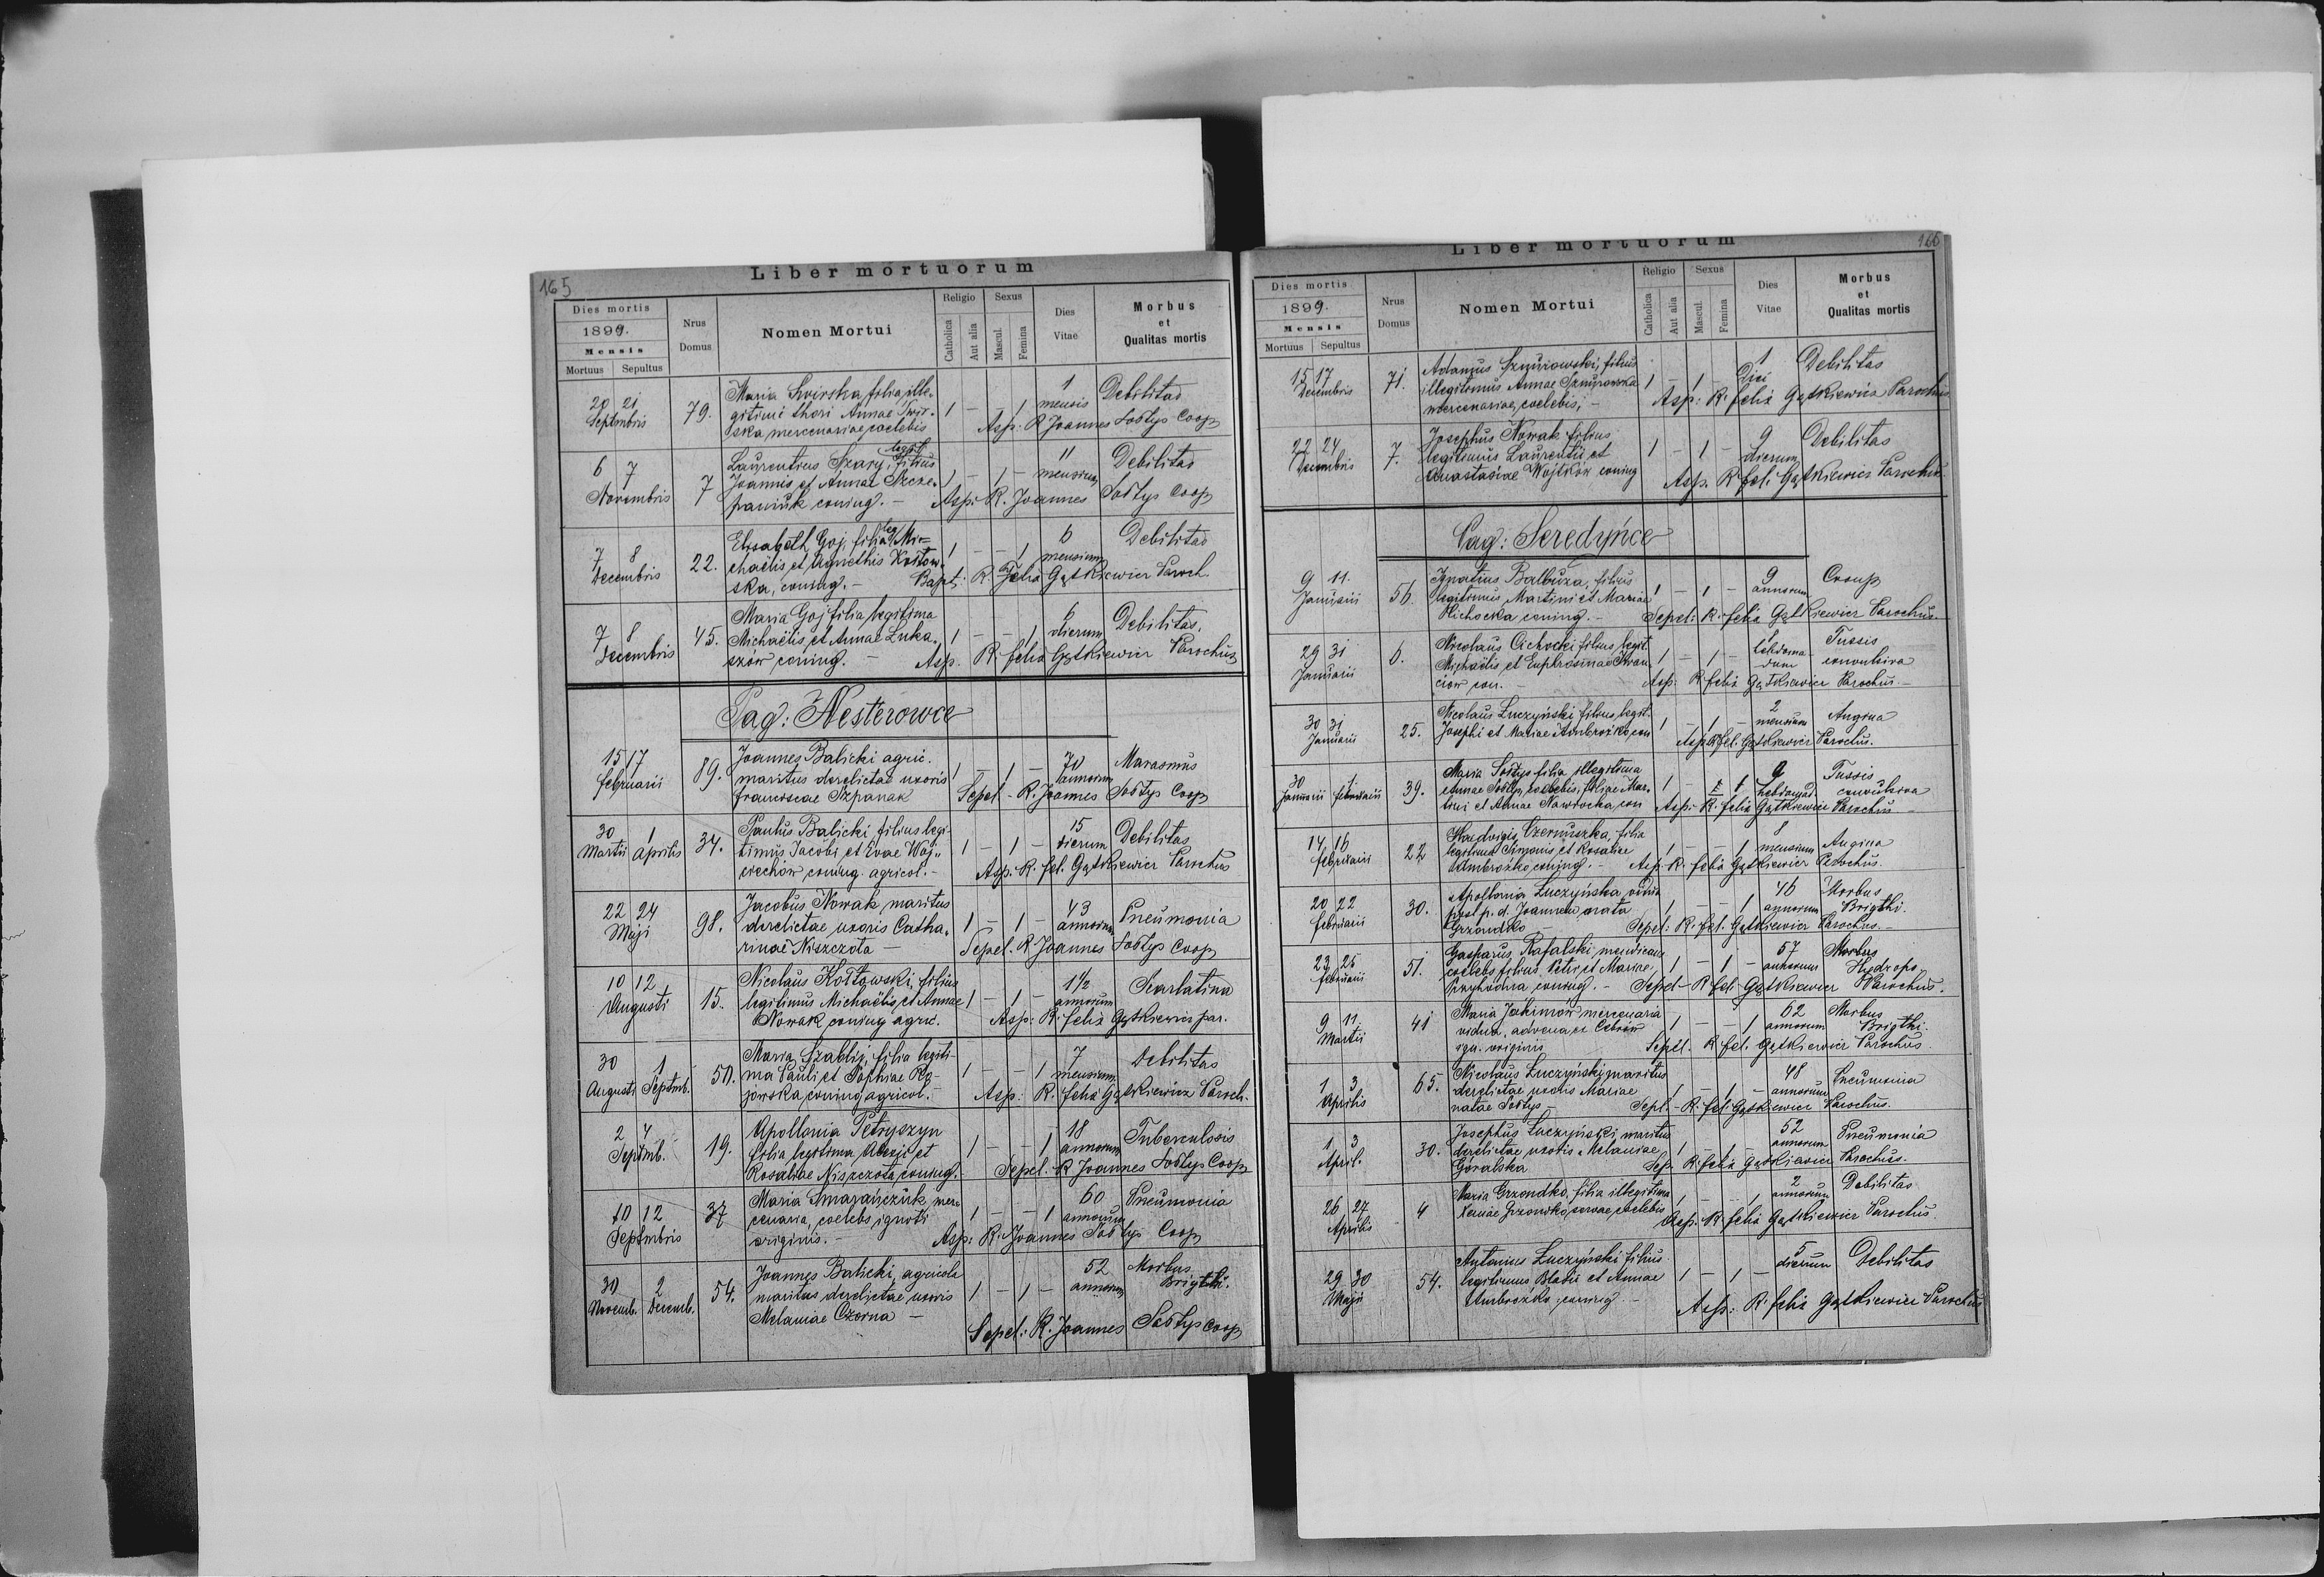 165
Liber mortuorum
Dies mortis
1899.
Mensis
Mortuus Sepultus
Nrus Domus
Nomen Mortui
Religio
Catholica
Aut alia
Sexus
Mascul.
Femina
Dies Vitae
Morbus et Qualitas mortis
20 21 Septembris 79. Maria Swirska, filia, ille- 1 - - 1 1 mensis Debilitas
gitimi thori Annae Swir-
ska, mercenariae, coelebis Asp. R. Joannes Sołtys Coop
6 7 Novembris 7 Laurentius Szary, legit. filius 1 - 1 - 11 mensium Debilitas
Joannis et Annae Szcze-
paniuk coniug. - Asp. R. Joannes Sołtys Coop
7 8 Decembris 22. Elisabeth Goj, filia leg. Mi- 1 - - 1 6 mensium Debilitas
chaëlis et Agnethis Kołtow-
ska, coniug. - Bapt. R. Felix Gątkiewicz Paroch.
7 8 Decembris 45. Maria Goj filia legitima 1 - - 1 6 dierum Debilitas.
Michaëlis et Annae Łuka-
szów coniug. - Asp. R. Felix Gątkiewicz Parochus
Pag: Nesterowce
15 17 Februarii 89. Joannes Balicki agric. 1 - 1 - 70 annorum Marasmus
maritus derelictae uxoris
Franciscae Szpanak Sepel - R. Joannes Sołtys Coop
30 Martii 1 Aprilis 34. Paulus Balicki filius legi- 1 - 1 - 15 dierum Debilitas
timus Jacobi et Evae Woj-
ciechów, coniug. agricol. - Asp. R. Fel. Gątkiewicz Parochus
22 24 Maji 98. Jacobus Nowak maritus 1 - 1 - 43 annorum Pneumonia
derelictae uxoris Catha-
rinae Niszczota - Sepel. R. Joannes Sołtys Coop
10 12 Augusti 15. Nicolaus Kołtowski, filius 1 - 1 - 1½ annorum Scarlatina
legitimus Michaëlis et Annae
Nowak coniug agric. Asp: R. Felix Gątkiewicz par.
30 Augusti 1 Septmb. 50. Maria Szablij, filia legiti- 1 - - 1 7 mensium Debilitas
ma Pauli et Sophiae Ro-
jowska, coniug agricol. - Asp: R. Felix Gątkiewicz Paroch.
2 4 Septmb. 19. Apollonia Petryszyn 1 - - 1 18 annorum Tuberculosis
filia legitima Alexii et
Rosaliae Niszczota, coniug. Sepel. R Joannes Sołtys Coop
10 12 Septmbris 37 Maria Smarańczuk, mer- 1 - - 1 60 annorum Pneumonia
cenaria, coelebs, ignoti
originis. - Asp: R. Joannes Sołtys Coop
30 Novemb. 2 Decemb. 54. Joannes Balicki, agricola 1 - 1 - 52 annorum Morbus Brigthi.
maritus derelictae uxoris
Melaniae Czorna - Sepel: R. Joannes Sołtys Coop
166
Liber mortuorum
Dies mortis
1899.
Mensis
Mortuus Sepultus
Nrus Domus
Nomen Mortui
Religio
Catholica
Aut alia
Sexus
Mascul.
Femina
Dies Vitae
Morbus et Qualitas mortis
15 17 Decembris 71. Adamus Sznurowski, filius 1 - 1 - 1 Diei Debilitas
illegitimus Annae Sznurowska
mercenariae, coelebis, - Asp: R. Felix Gątkiewicz Parochus
22 24 Decembris 7. Josephus Nowak filius 1 - 1 - 9 dierum Debilitas
legitimus Laurentii et
Anastasiae Wojtków coniug Asp. R. Fel. Gątkiewicz Parochus.
Pag: Seredyńce
9 11. Januarii 56. Ignatius Balbuza, filius 1 - 1 - 9 annorum Croup
legitimus Martini et Mariae
Cichocka coniug. - Sepel: R. Felix Gątkiewicz Parochus.
29 31 Januarii 6. Nicolaus Cichocki filius legit 1 - 1 - hebdomadum Tussis convulsiva
Michaëlis et Euphrosinae Iwan-
ciow con. - Asp: R. Felix Gątkiewicz Parochus. -
30 31 Januarii 25. Nicolaus Łuczyński filius legit. 1 - 1 - 2 mensium Angina
Josephi et Mariae Ambrożko, con Asp. R. Fel. Gątkiewicz Parochus.
30 Januarii 1 Februarii 39. Maria Sołtys filia illegitima 1 - - 1 9 hebdomad. Tussis convulsiva
Annae Sołtys, coelebis, filiae Mar-
tini et Annae Nawrocka, con Asp: R. Felix Gątkiewicz Parochus -
14 16 Februarii 22 Hedvigis Czernuszka, filia 1 - - 1 8 mensium Angina
legitima Simonis et Rosaliae
Ambrożko, coniug. - Asp. R. Felix Gątkiewicz Parochus.
20 22 Februarii 30. Apollonia Łuczyńska, vidua 1 - - 1 46 annorum Morbus Brigthi.
post p. d. Joannem, nata
Grzondko - Sepel: R. Fel. Gątkiewicz Parochus. -
23 25 Februarii 51. Gasparus Rafalski, mendicans 1 - 1 - 57 annorum Morbus Hydrops
coelebs filius Petri et Mariae
Przyhodna coniug. - Sepel - R. Fel. Gątkiewicz Parochus.
9 11. Martii 41 Maria Jakimów mercenaria 1 - - 1 62 annorum Morbus Brigthi.
vidua, advena ex Cebrów
ign. originis Sepel. R. Fel. Gątkiewicz Parochus.
1 3 Aprilis 65. Nicolaus Łuczyński, maritus 1 - 1 - 48 annorum Pneumonia
derelictae uxoris Mariae
natae Sołtys - Sepel. - R. Fel. Gątkiewicz Parochus.
1 3 April. 30. Josephus Łuczyński maritus 1 - 1 - 52 annorum Pneumonia
derelictae uxoris Melaniae
Góralska Sep. R. Felix Gątkiewicz Parochus.
26 27 Aprilis 4 Maria Grzondko, filia illegitima 1 - - 1 2 annorum Debilitas
Xeniae Grzondko, servae, coelebis Asp. R. Felix Gątkiewicz Parochus.
29 30 Maji 54. Antonius Łuczyński filius 1 - 1 - 5 dierum Debilitas
legitimus Blasii et Annae
Ambrożko, coniug. - Asp: R. Felix Gątkiewicz Parochus